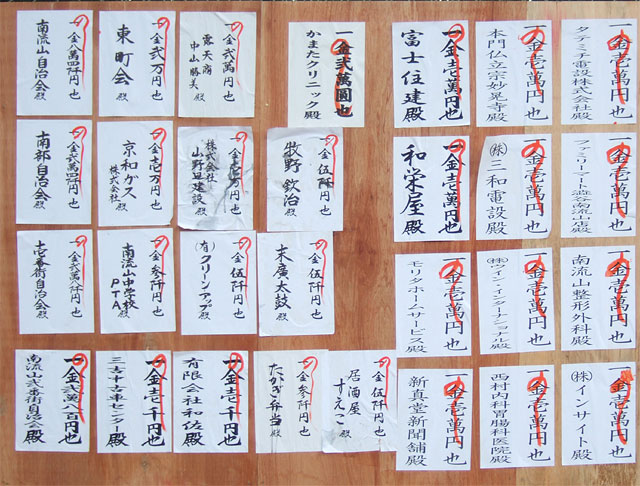 一金壱萬円也
タテミチ電設株式会社殿
一金壱萬円也
本門仏立宗妙晃寺殿
一金壱萬円也
富士住建殿
一金弐萬圓也
かまたクリニック殿
一金弐萬円也
露天商
中山勝美殿
一金弐万円也
東町会殿
一金八萬四阡円也
南流山自治会殿
一金壱萬円也
ファミリーマート澁谷南流山店殿
一金壱萬円也
㈱三和電設殿
一金壱萬円也
和栄屋殿
一金伍阡円也
牧野欽治殿
一金壱万円也
株式会社
山野辺建設殿
一金壱万円也
京和ガス
株式会社殿
一金弐萬四阡円也
南部自治会殿
一金壱萬円也
南流山整形外科殿
一金壱萬円也
㈱ツイン・インターナショナル殿
一金壱萬円也
モリタホームサービス殿
一金伍阡円也
末廣太鼓殿
一金伍阡円也
(有)クリーンアップ殿
一金参阡円也
南流山中学校
PTA殿
壱番街自治会殿
一金壱萬円也
㈱インサイト殿
一金壱萬円也
西村内科胃腸科医院殿
一金壱萬円也
新真堂新聞舗殿
一金伍阡円也
居酒屋
すえこ殿
一金参阡円也
たかぎ弁当殿
一金壱千円也
有限会社和佐殿
一金壱千円也
三吉中古車センター殿
一金弐萬八百円也
南流山弐番街自治会殿